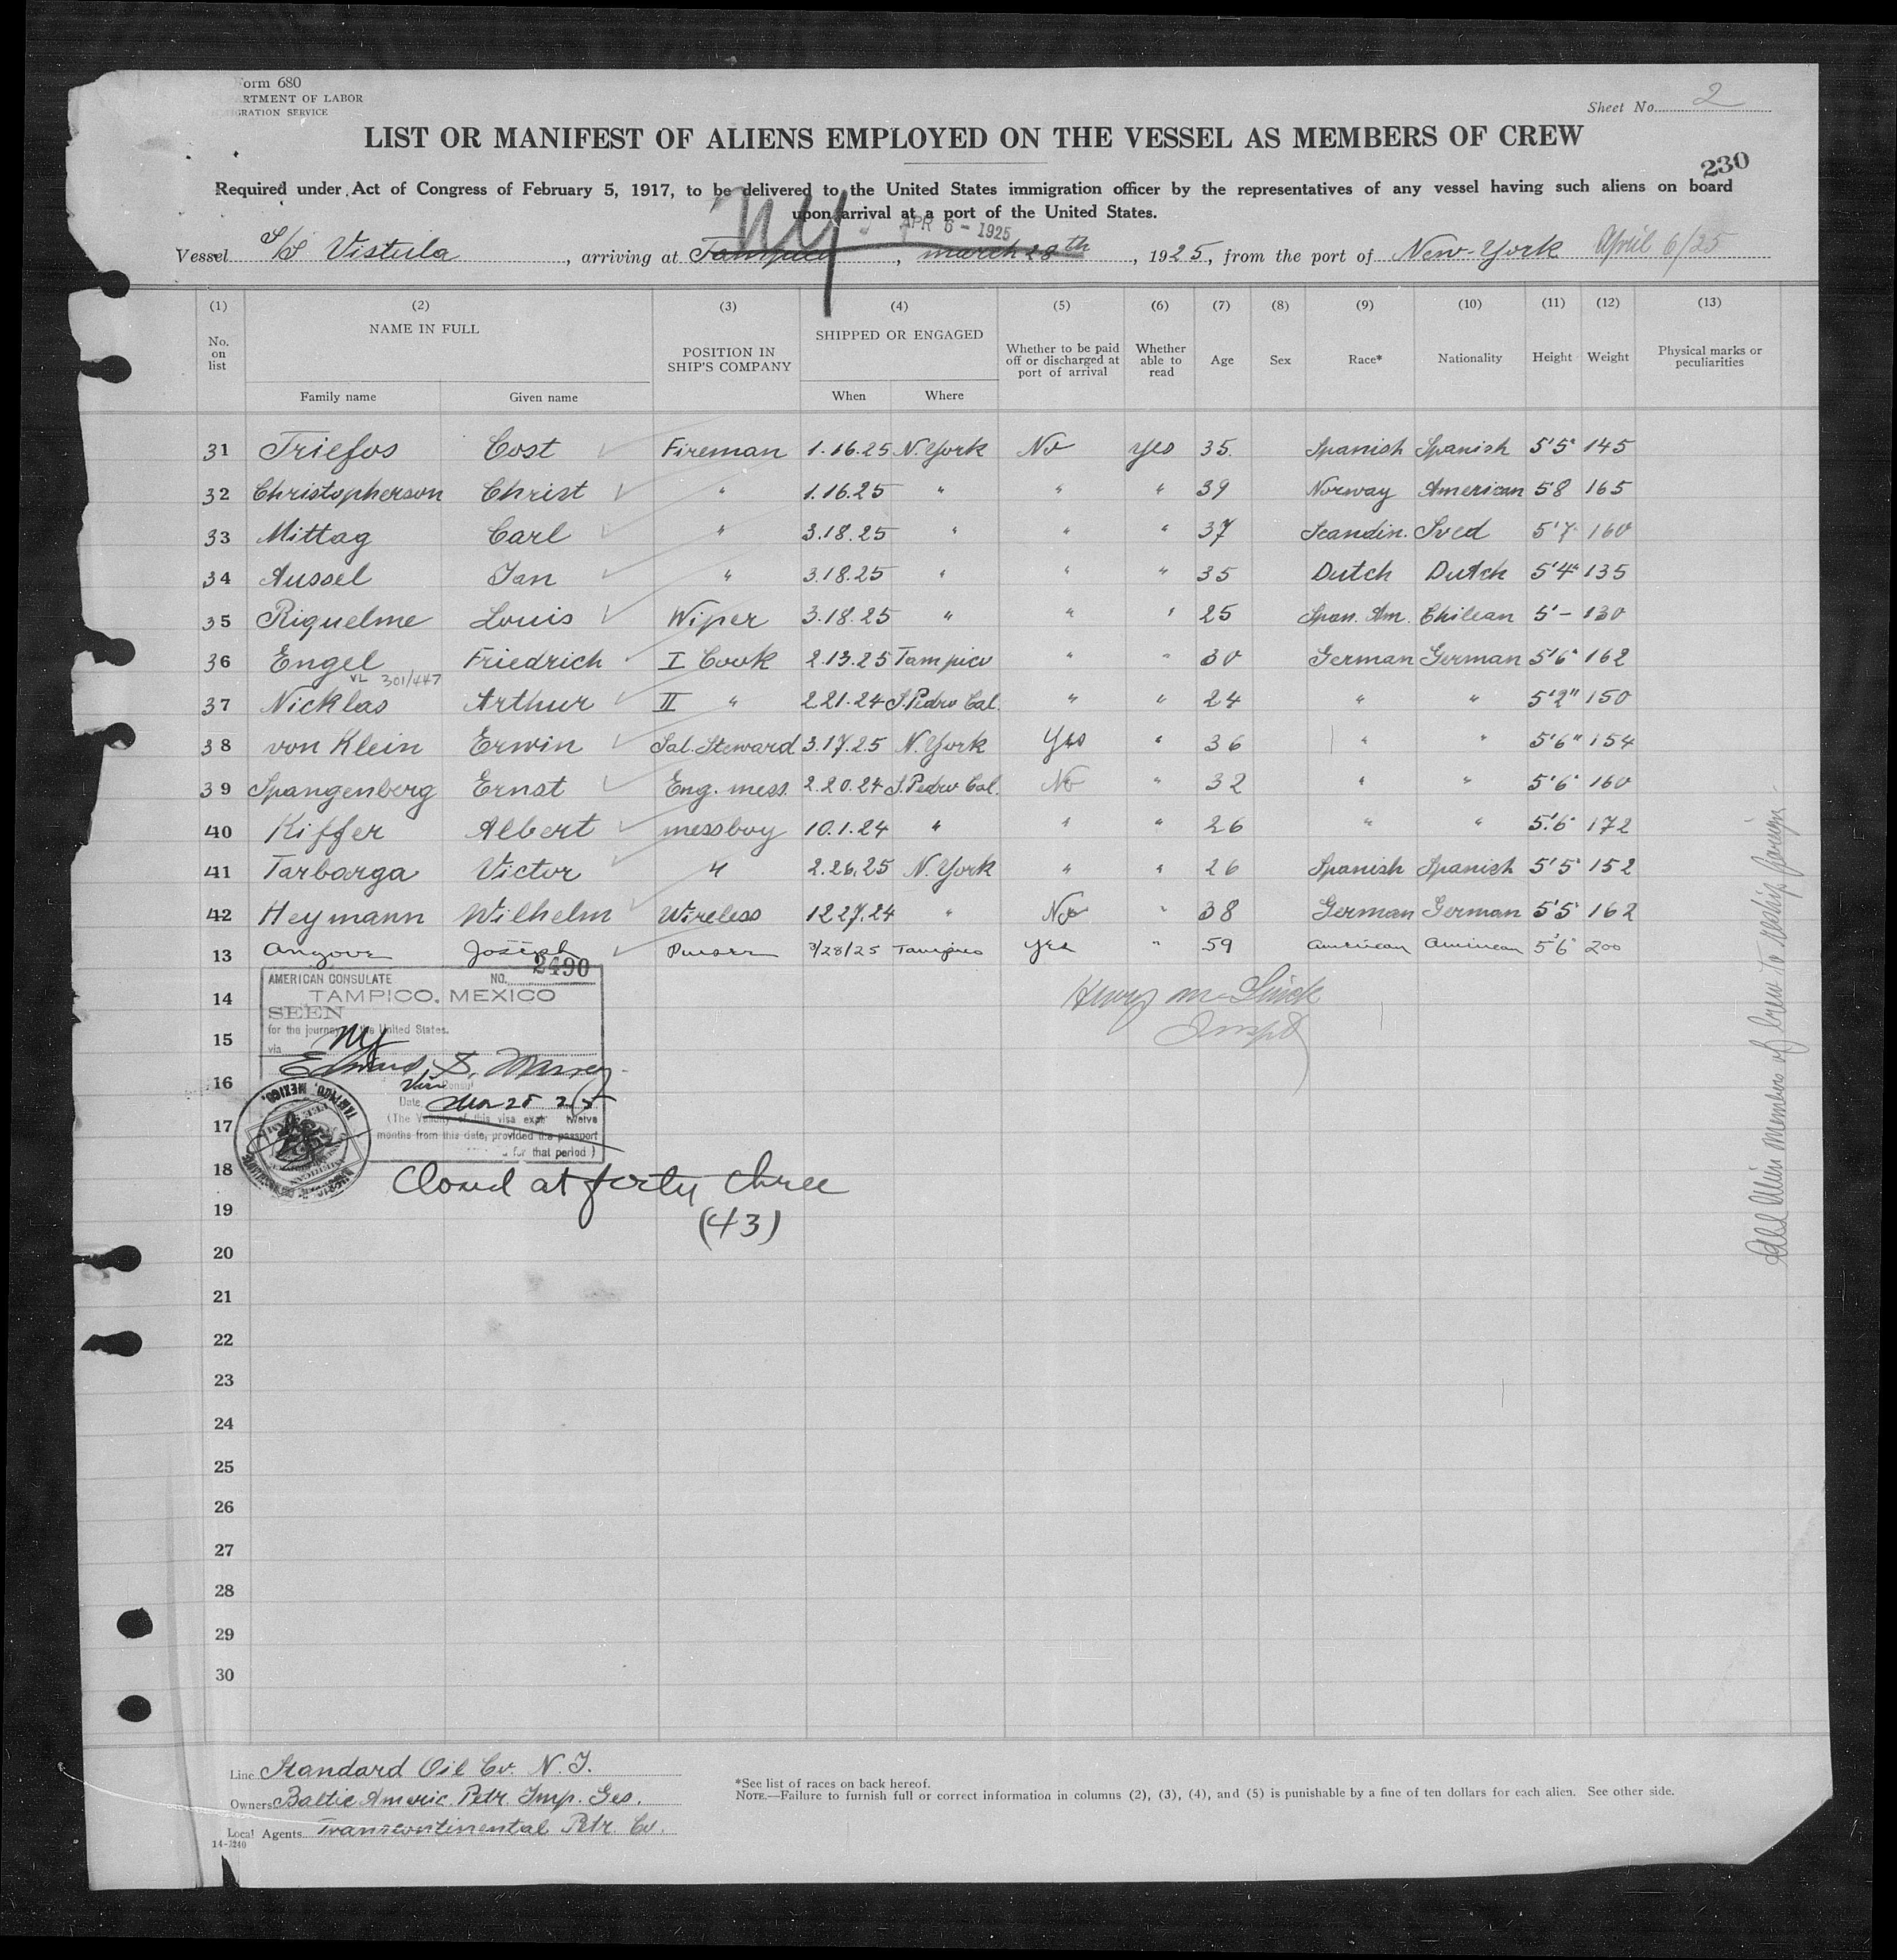 Form 680
RTMENT OF LABOR
GRATION SERVICE
Sheet No. 2
LIST OR MANIFEST OF ALIENS EMPLOYED ON THE VESSEL AS MEMBERS OF CREW
230
Required under Act of Congress of February 5, 1917, to be delivered to the United States immigration officer by the representatives of any vessel having such aliens on board
upon arrival at a port of the United States.
NY. APR 6 - 1925
Vessel S/S Vistula, arriving at Tampico, march 28th, 1925, from the port of New-York April 6/25
(1) (2) (3) (4) (5) (6) (7) (8) (9) (10) (11) (12) (13)
No. on list NAME IN FULL POSITION IN SHIP'S COMPANY SHIPPED OR ENGAGED Whether to be paid off or discharged at port of arrival Whether able to read Age Sex Race* Nationality Height Weight Physical marks or peculiarities
Family name Given name When Where
31 Triefos Cost Fireman 1.16.25 N.York No Yes 35. Spanish Spanish 5'5" 145
32 Christopherson Christ " 1.16.25 " " " 39 Norway American 58 165
33 Mittag Carl " 3.18.25 " " " 37 Scandin. Sved 5'7" 160
34 Aussel Jan " 3.18.25 " " " 35 Dutch Dutch 5'4" 135
35 Riquelme Louis Wiper 3.18.25 " " " 25 Span. Am. Chilean 5'- 130
36 Engel Friedrich I Cook 2.13.25 Tampico " " 30 German German 5'6" 162
VL 301/447
37 Nicklas Arthur II " 2.21.24 S.Pedro Cal. " " 24 " " 5'2" 150
38 von Klein Erwin Sal. Steward 3.17.25 N.York Yes " 36 " " 5'6" 154
39 Spangenberg Ernst Eng. mess. 2.20.24 S.Pedro Cal. No " 32 " " 5'6" 160
40 Kiffer Albert messboy 10.1.24 " " " 26 " " 5'6" 172
41 Tarbarga Victor " 2.26.25 N.York " " 26 Spanish Spanish 5'5" 152
42 Heymann Wilhelm Wireless 12.27.24 " No " 38 German German 5'5" 162
13 Angove Joseph Purser 3/28/25 Tampico yes " 59 American American 5'6" 200
14
15
16
17
18
19
20
21
22
23
24
25
26
27
28
29
30
AMERICAN CONSULATE NO. 2490
TAMPICO, MEXICO
SEEN
for the journey the United States.
via NY
Vice Consul
Date Mar 28 25
(The Validity of this visa twelve
months from this date, provided the passport
for that period)
Closed at forty three
(43)
Henry
Inspt
All Alien members of Crew to reship foreign.
Line Standard Oil Co. N.J.
Owners Baltic Americ. Petr. Imp. Ges.
Local Agents Transcontinental Petr. Co.
14-1240
*See list of races on back hereof.
NOTE.—Failure to furnish full or correct information in columns (2), (3), (4), and (5) is punishable by a fine of ten dollars for each alien. See other side.